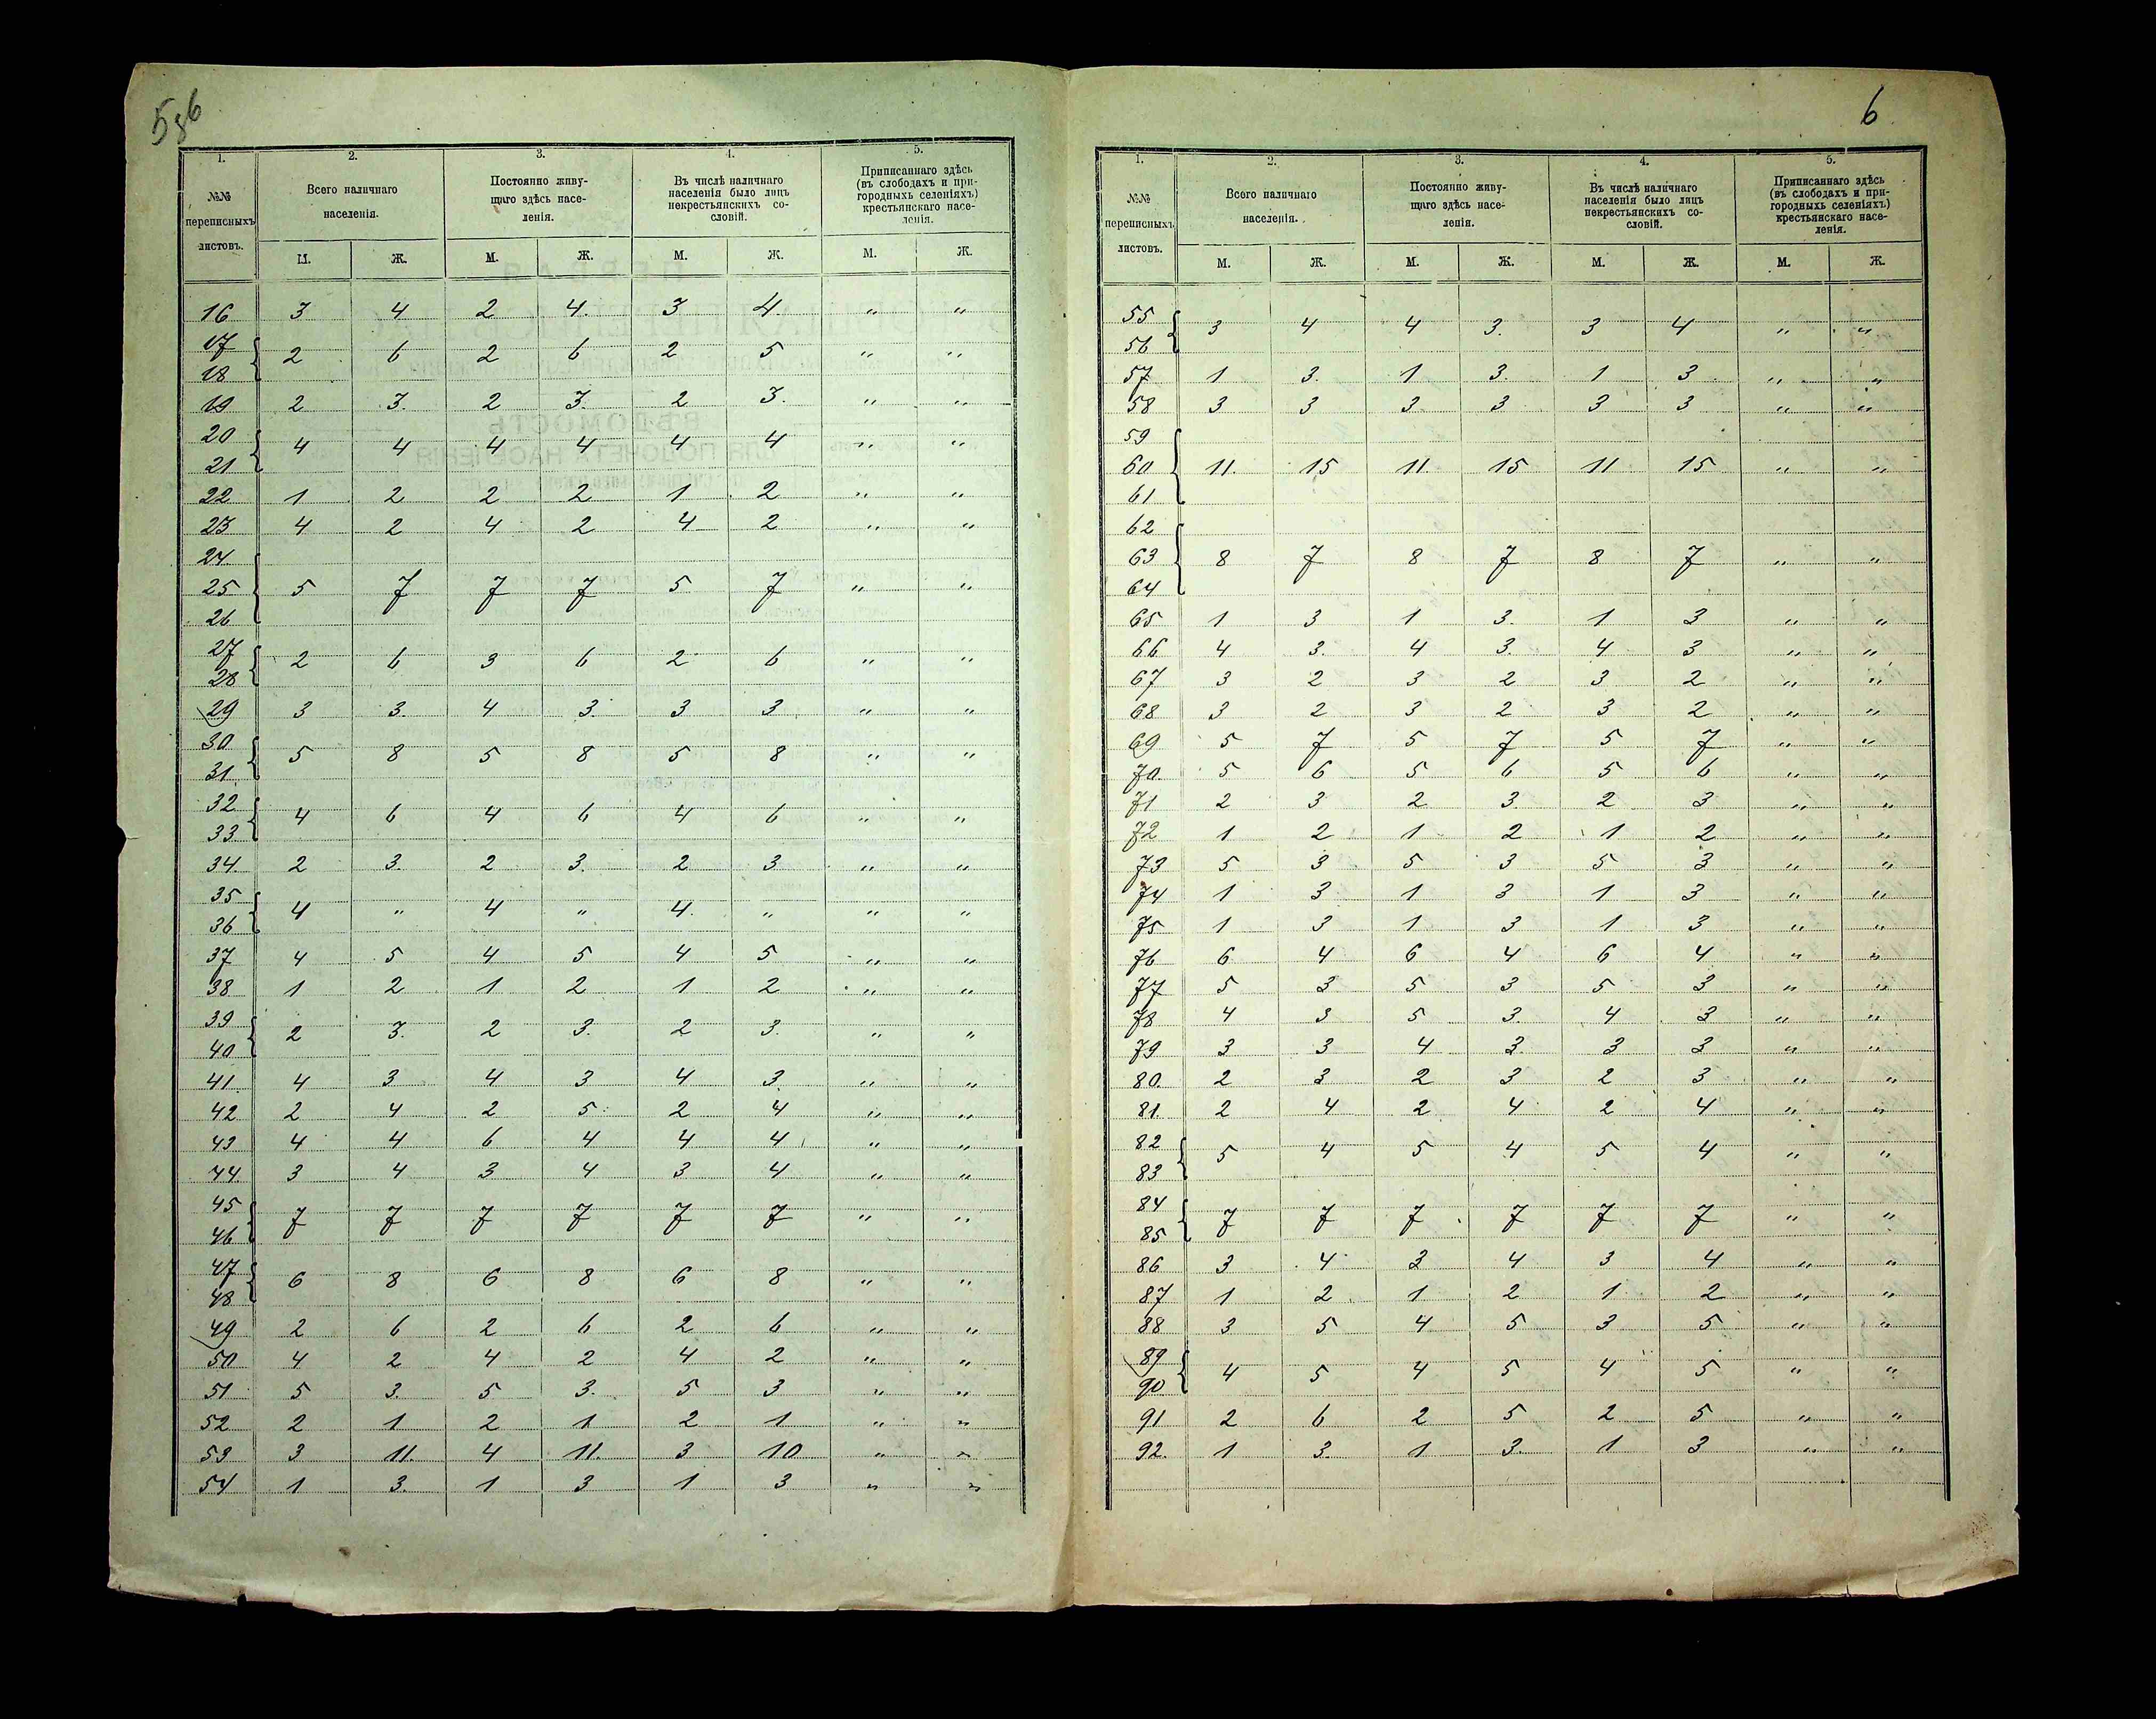 5 об
1. 2. 3. 4. 5.
№№ переписныхъ листовъ. Всего наличнаго населенія. Постоянно живущаго здѣсь населенія. Въ числѣ наличнаго населенія было лицъ некрестьянскихъ сословій. Приписаннаго здѣсь (въ слободахъ и пригородныхъ селеніяхъ) крестьянскаго населенія.
М. Ж. М. Ж. М. Ж. М. Ж.
16 3 4 2 4. 3 4. " "
17
18 2 6 2 6 2 5 " "
19 2 3. 2 3. 2 3. " "
20
21 4 4 4 4 4 4 " "
22 1 2 2 2 1 2 " "
23 4 2 4 2 4 2 " "
24.
25 5 7 7 7 5 7 " "
26
27
28 2 6 3 6 2 6 " "
29 3 3. 4 3. 3 3. " "
30
31 5 8 5 8 5 8 " "
32
33 4 6 4 6 4 6 " "
34. 2 3. 2 3. 2 3 " "
35
36 4 " 4 " 4. " " "
37 4 5 4 5 4 5 " "
38 1 2 1 2 1 2 " "
39
40 2 3. 2 3. 2 3. " "
41 4 3 4 3 4 3. " "
42 2 4 2 5 2 4 " "
43 4 4 6 4 4 4 " "
44. 3 4 3 4 3 4 " "
45
46 7 7 7 7 7 7 " "
47
48 6 8 6 8 6 8 " "
49 2 6 2 6 2 6 " "
50 4 2 4 2 4 2 " "
51 5 3. 5 3. 5 3 " "
52 2 1 2 1 2 1 " "
53 3 11. 4 11. 3 10 " "
54 1 3. 1 3 1 3 " "
6
1. 2. 3. 4. 5.
№№ переписныхъ листовъ. Всего наличнаго населенія. Постоянно живущаго здѣсь населенія. Въ числѣ наличнаго населенія было лицъ некрестьянскихъ сословій. Приписаннаго здѣсь (въ слободахъ и пригородныхъ селеніяхъ) крестьянскаго населенія.
М. Ж. М. Ж. М. Ж. М. Ж.
55
56 3 4 4 3. 3 4 " "
57 1 3. 1 3. 1 3 " "
58 3 3 3 3 3 3 " "
59
60 11. 15 11 15 11 15 " "
61
62
63 8 7 8 7 8 7 " "
64
65 1 3 1 3. 1 3 " "
66 4 3. 4 3. 4 3 " "
67 3 2 3 2 3 2 " "
68 3 2 3 2 3 2 " "
69 5 7 5 7 5 7 " "
70. 5 6 5 6 5 6 " "
71 2 3 2 3. 2 3 " "
72 1 2 1 2 1 2 " "
73 5 3 5 3 5 3 " "
74 1 3. 1 3 1 3 " "
75 1 3 1 3 1 3 " "
76 6 4 6 4 6 4 " "
77 5 3 5 3 5 3 " "
78 4 3 5 3. 4 3 " "
79 3 3 4 3. 3 3 " "
80. 2 3 2 3 2 3 " "
81. 2 4 2 4 2 4 " "
82
83 5 4 5 4 5 4 " "
84
85 7 7 7 7 7 7 " "
86 3 4 3 4 3 4 " "
87 1 2 1 2 1 2 " "
88 3 5 4 5 3 5 " "
89
90 4 5 4 5 4 5 " "
91 2 6 2 5 2 5 " "
92. 1 3. 1 3. 1 3 " "